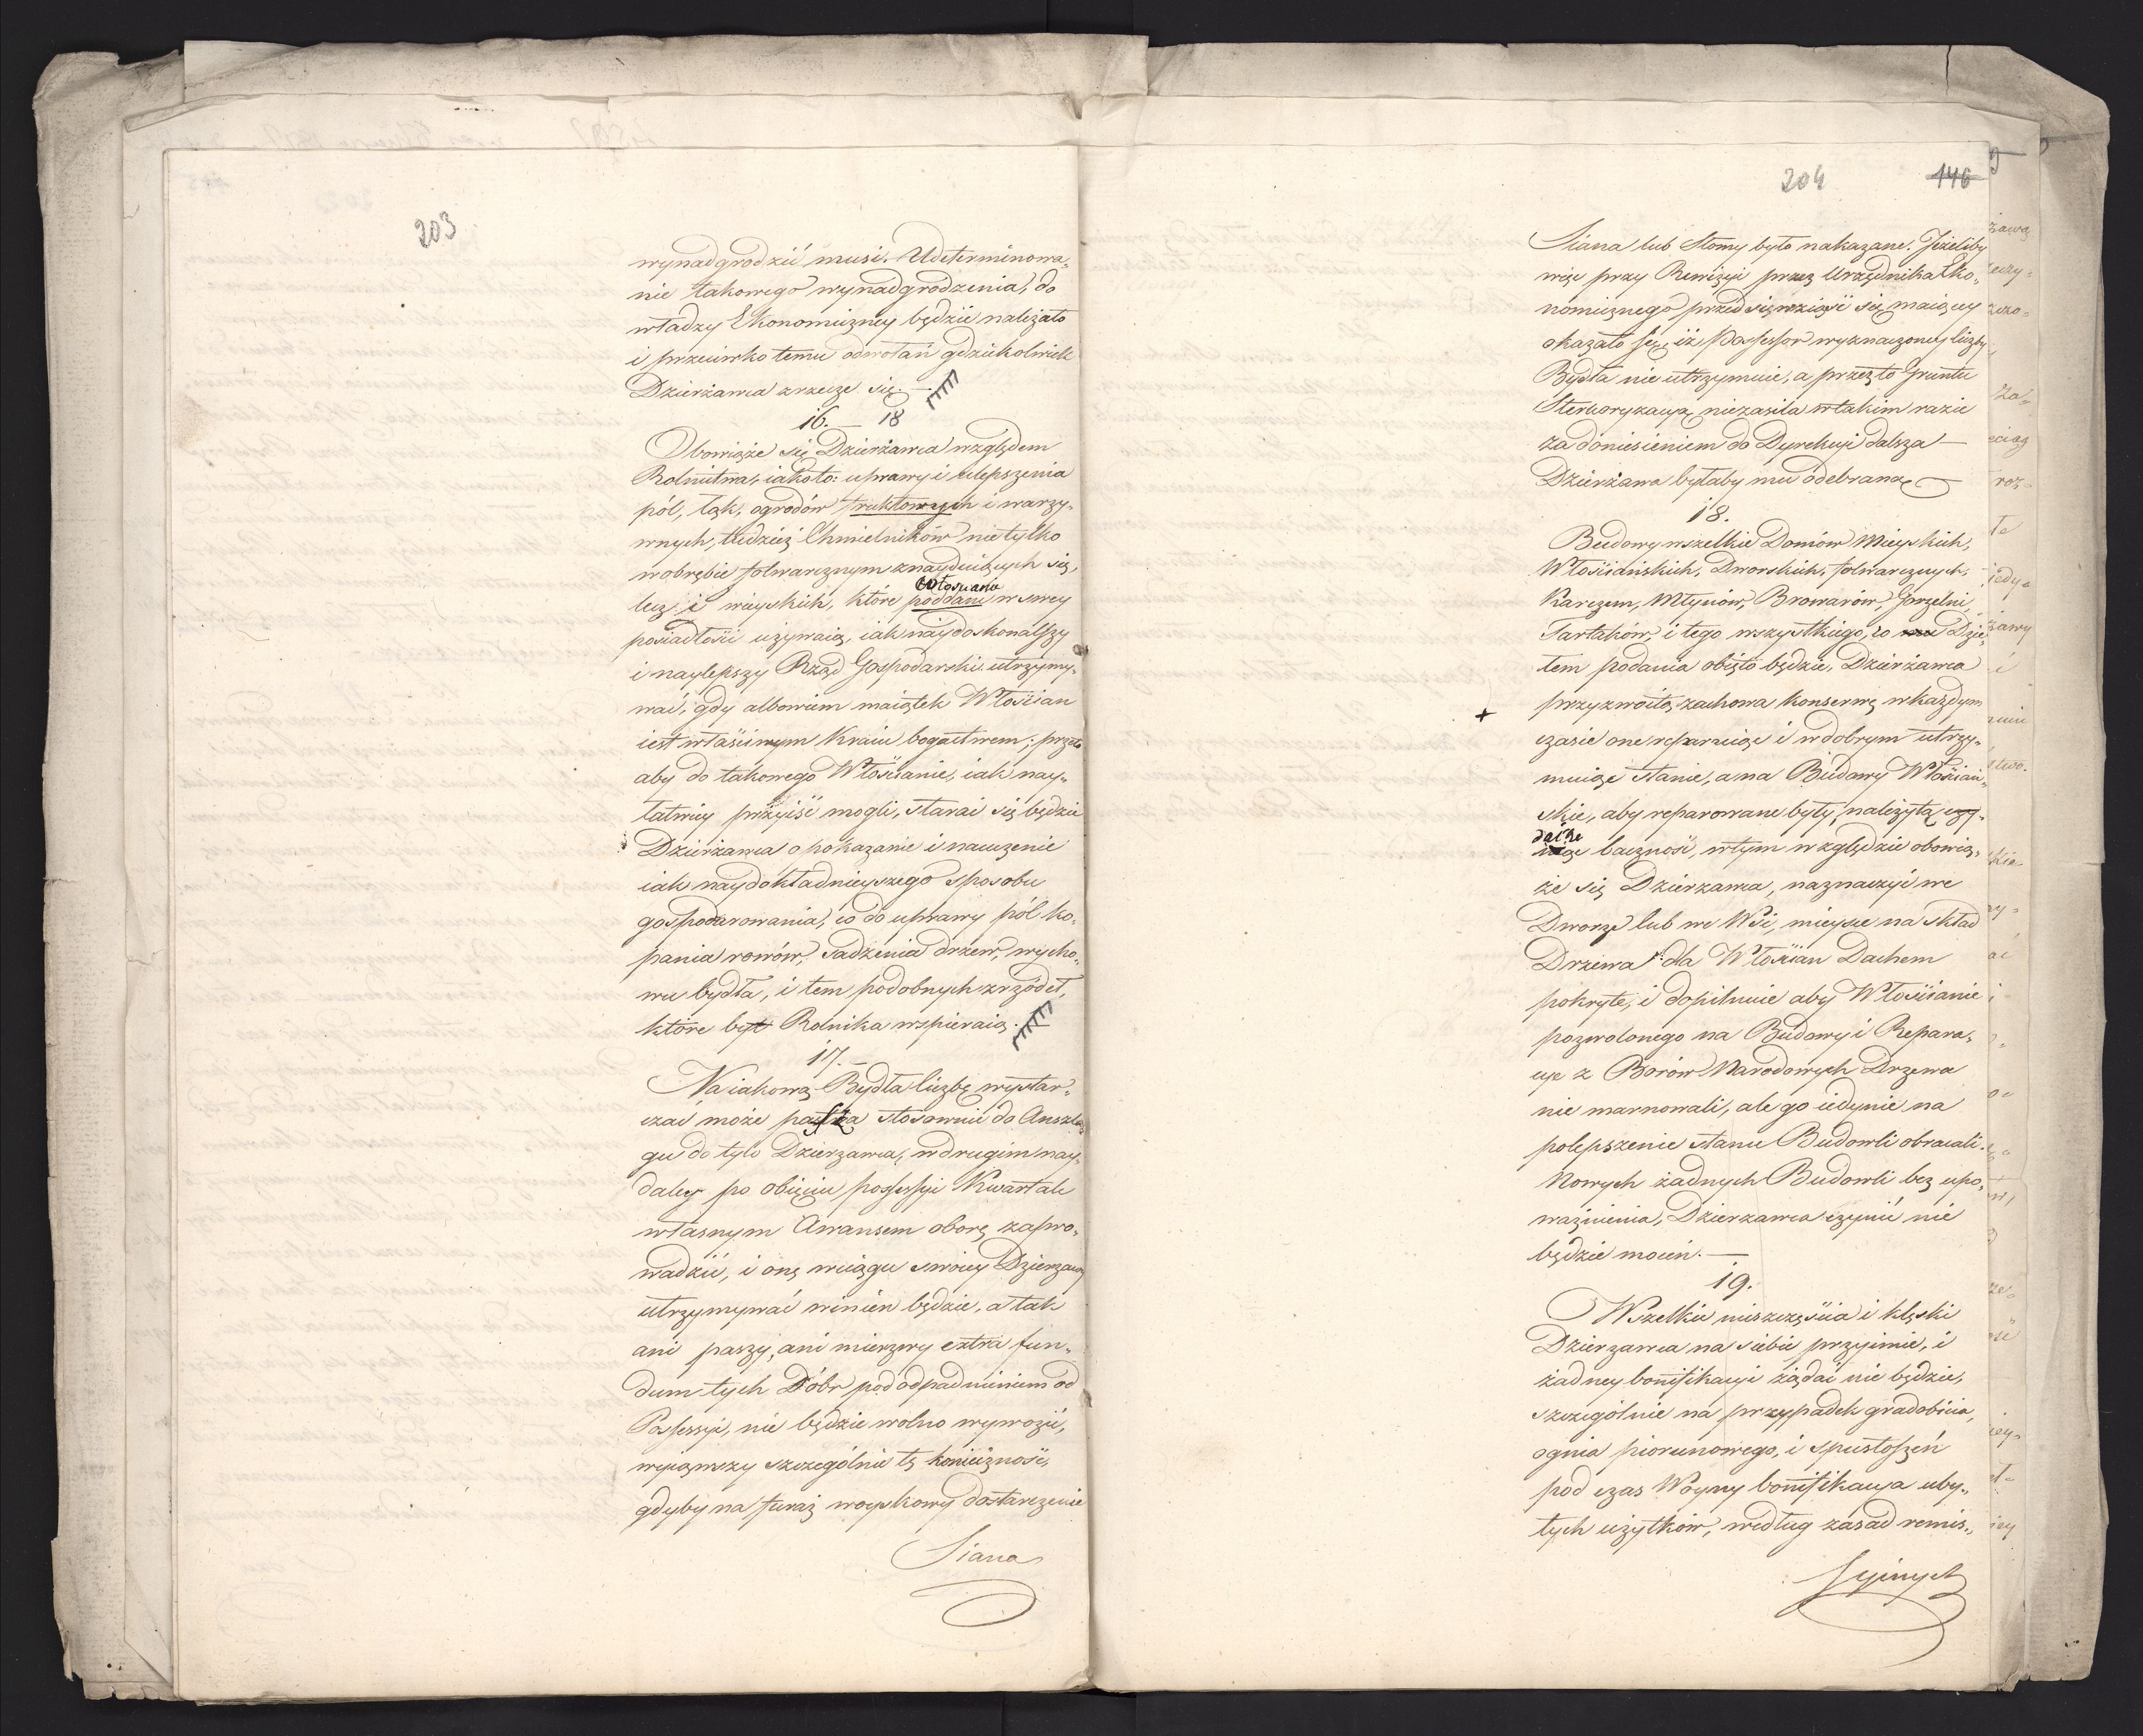 203
wynadgrodzić musi. Udeterminowa„
nie takowego wynadgrodzenia, do
władzy Ekonomiczney będzie należało
i przeciwko temu odwołań gdziekolwiek
Dzierżawca zrzecze się. —
16. — 18
Obowiąże się Dzierżawca względem
Rolnictwa, iakoto: uprawy i ulepszenia
pól, łąk, ogrodów fruktowych i warzy„
wnych, tudzież Chmielników nie tylko
w obrębie folwarcznym znayduiących się,
włościanie
lecz i wieyskich, które poddani w swey
posiadłości używaią, iak naydoskonalszy
i naylepszy Rząd Gospodarski utrzymy„
wać, gdy albowiem maiątek Włościan
iest właściwym Kraiu bogactwem; przeto
aby do takowego Włościanie, iak nay„
łatwiey przyiść mogli, starać się będzie
Dzierżawca o pokazanie i nauczenie
iak naydokładnieyszego sposobu
gospodarowania, co do uprawy pól ko„
pania rowów, sadzenia drzew, wycho„
wu bydła, i tem podobnych zrzódeł,
które byt Rolnika wspieraią. —
17. —
Na iakową Bydła liczbę wystar„
czać może pasza stosownie do Anszla„
gu do tylo Dzierzawca, w drugim nay„
daley po obięciu possessyi Kwartale
własnym Awansem oborę zapro„
wadzić, i onę w ciągu swoiey Dzierzawy
utrzymywać winien będzie, a tak
ani paszy, ani mierzwy extra fun„
dum tych Dóbr pod odpadnieniem od
Possessyi, nie będzie wolno wywozić,
wyiąwszy szczególnie tę konieczność,
gdyby na furaż woyskowy dostarczenie
Siana
204 146
Siana lub Słomy było nakazane. Jeżeliby
więc przy Rewizyi przez Urzędnika Eko„
nomicznego przedsięwziąść się maiącey
okazało się, iż Possessor wyznaczoney liczby
Bydła nie utrzymuie, a przez to Gruntu
Sterkoryzacyą niezasila w takim razie
za doniesieniem do Dyrekcyi dalsza —
Dzierżawa byłaby mu odebraną —
18.
Budowy wszelkie Domów Mieyskich,
Włościańskich, Dworskich, folwarcznych,
Karczem, Młynów, Browarów, Gorzelni,
Tartaków, i tego wszystkiego, co Dzie„
łem podania obięto będzie, Dzierżawca
przyzwoitą zachowa konserwę w każdym
+
czasie one reparuiąc i w dobrym utrzy„
muiąc stanie, a na Budowy Włościań„
skie, aby reparowane były, należytą czy„
daiąc
iąc baczność, w tym względzie obowią„
że się Dzierzawca, naznaczyć we
Dworze lub we Wsi, mieysce na skład
Drzewa dla Włościan Dachem
pokryte, i dopilnuie aby Włościanie
pozwolonego na Budowy i Repara„
cye z Borów Narodowych Drzewa
nie marnowali, ale go iedynie na
polepszenie stanu Budowli obracali.
Nowych żadnych Budowli bez upo„
ważnienia, Dzierzawca czynić nie
będzie mocen. —
19.
Wszelkie nieszczęścia i klęski
Dzierzawca na siebie przyimie, i
żadney bonifikacyi żądać nie będzie,
szczególnie na przypadek gradobicia,
ognia piorunowego, i spustoszeń
pod czas Woyny bonifikacya uby„
łych użytków, według zasad remis„
syinych